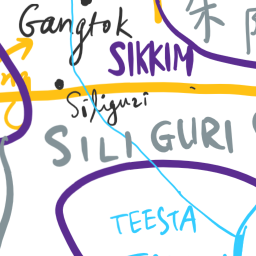 Gangtok
SIKKIM
Siliguri
SILIGURI
TEESTA